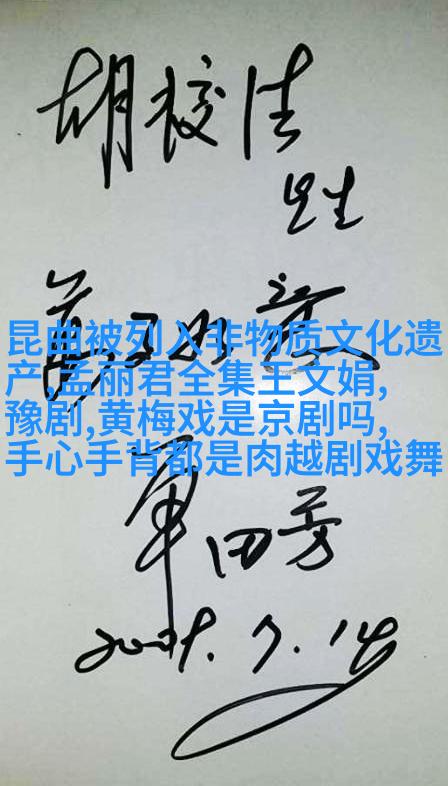 先生
昆曲被列入非物质文化遗
产,孟丽君全集王文娟,
豫剧,黄梅戏是京剧吗,
手心手背都是肉越剧戏舞
单田芳